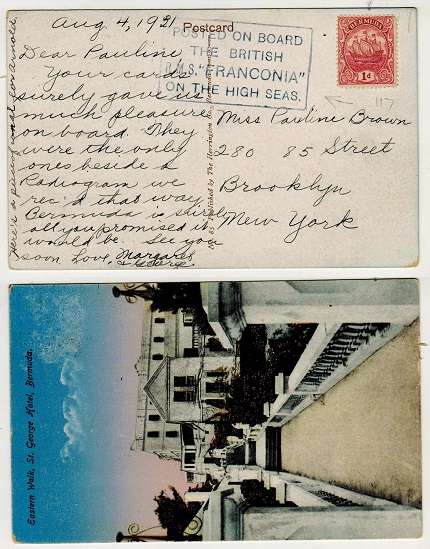 Aug 4, 1921
Postcard
Dear Pauline
Your cards
surely gave us
much pleasure
on board. They
were the only
ones beside a
Radiogram we
rec'd that way.
Bermuda is still
all you promised it
would be. See you
soon. Love, Margaret
& George
Here's a
POSTED ON BOARD
THE BRITISH
R.M.S. "FRANCONIA"
ON THE HIGH SEAS.
BERMUDA
1d
117
Miss Pauline Brown
280 85 Street
Brooklyn
New York
No. 85 Published by The Herrington Co.,
Eastern Walk, St. George Hotel, Bermuda.